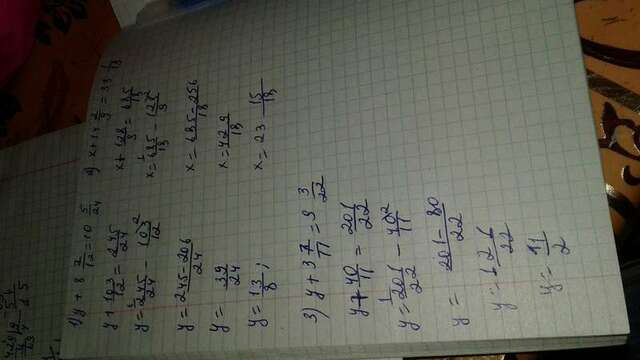 1) y + 8 7/12 = 10 5/24
y + 103/12 = 245/24
y = 245/24 - 103/12
y = 245-206/24
y = 39/24
y = 13/8;
2) x + 14 2/9 =
x + 128/9 = 685/18
x = 685/18 - 128/9
x = 685-256/18
x = 429/18
x = 23 15/18
3) y + 3 7/11 = 9 3/22
y + 40/11 = 201/22
y = 201/22 - 40/11
y = 201-80/22
y = 121/22
y = 11/2